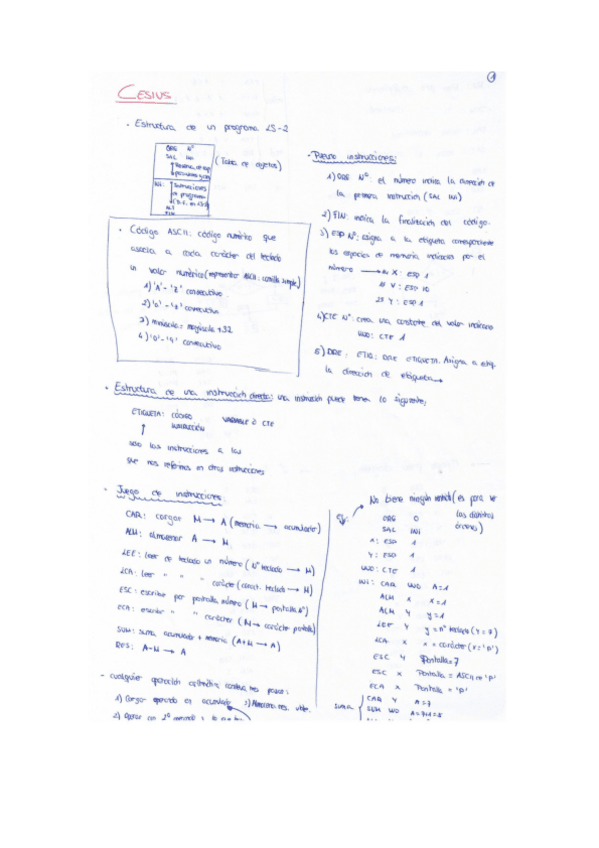 1
CESIUS
• Estructura de un programa LS-2
ORG Nº
SAL INI
(Tabla de objetos)
INI: Instrucciones
de programa
ALT
FIN
• Código ASCII: código numérico que
asocia a cada carácter del teclado
un valor numérico (representar ASCII: comilla simple)
1) 'A' - 'Z' consecutivo
2) 'a' - 'z' consecutivo
3) minúscula = mayúscula + 32
4) '0' - '9' consecutivo
- Pseudo instrucciones:
1) ORG Nº: el número indica la dirección de
la primera instrucción (SAL INI)
2) FIN: indica la finalización del código.
3) ESP Nº: asigna a la etiqueta correspondiente
los espacios de memoria indicados por el
número → X: ESP 1
V: ESP 10
Y: ESP 1
4) CTE Nº: crea una constante del valor indicado
UNO: CTE 1
5) DRE: ETIQ: DRE ETIQUETA. Asigna a etiq.
la dirección de etiqueta →
• Estructura de una instrucción directa: una instrucción puede tener lo siguiente:
ETIQUETA: CÓDIGO VARIABLE ó CTE
INSTRUCCIÓN
solo las instrucciones a las
que nos referimos en otras instrucciones
- Juego de instrucciones:
CAR: cargar M → A (memoria → acumulador)
ALM: almacenar A → M
LEE: leer de teclado un número (Nº teclado → M)
LCA: leer " " " carácter (caract. teclado → M)
ESC: escribir por pantalla número (M → pantalla Nº)
ECA: escribir " " carácter (M → carácter pantalla)
SUM: suma acumulador + memoria (A+M → A)
RES: A-M → A
- cualquier operación aritmética contiene tres pasos:
1) Cargar operando en acumulador 3) Almacenar res. vble.
ej:
No tiene ningún sentido (es para ver
las distintas
órdenes)
ORG 0
SAL INI
X: ESP 1
Y: ESP 1
UNO: CTE 1
INI: CAR UNO A=1
ALM X X=1
ALM Y Y=1
LEE Y Y=nº teclado (Y=7)
LCA X X=carácter (X='P')
ESC Y Pantalla=7
ESC X Pantalla = ASCII de 'P'
ECA X Pantalla = 'P'
SUMA
CAR Y A=7
SUM UNO A=7+1=8